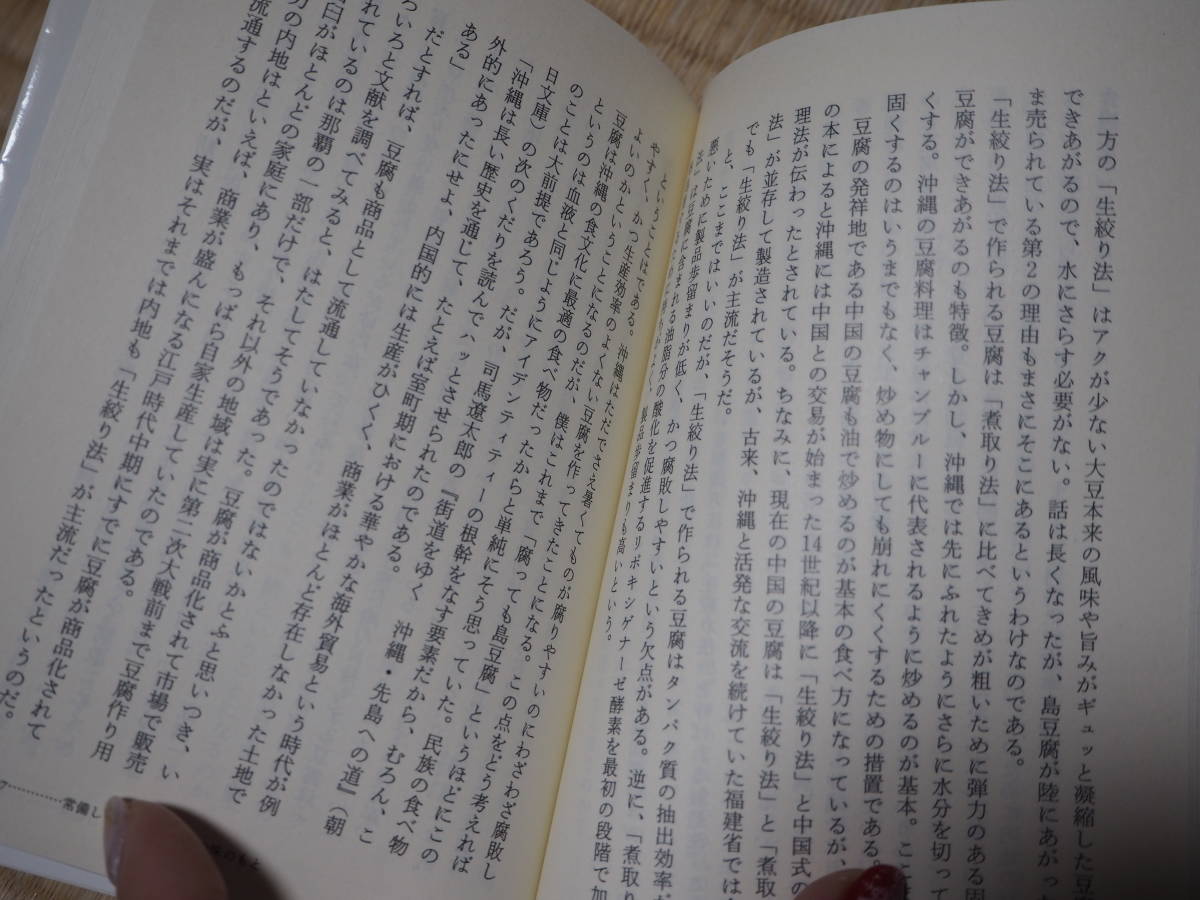 一方の「生絞り法」はアクが少ない大豆本来の風味や旨みがギュッと凝縮した豆
できあがるので、水にさらす必要がない。話は長くなったが、島豆腐が陸にあがっ
ま売られている第2の理由もまさにそこにあるというわけなのである。
「生絞り法」で作られる豆腐は「煮取り法」に比べてきめが粗いために弾力のある固
豆腐ができあがるのも特徴。しかし、沖縄では先にふれたようにさらに水分を切って
くする。沖縄の豆腐料理はチャンプルーに代表されるように炒めるのが基本。ここま
固くするのはいうまでもなく、炒め物にしても崩れにくくするための措置である。
豆腐の発祥地である中国の豆腐も油で炒めるのが基本の食べ方になっているが、
の本によると沖縄には中国との交易が始まった14世紀以降に「生絞り法」と中国式の
理法が伝わったとされている。ちなみに、現在の中国の豆腐は「生絞り法」と「煮取
法」が並存して製造されているが、古来、沖縄と活発な交流を続けていた福建省では今
でも「生絞り法」が主流だそうだ。
と、ここまではいいのだが、「生絞り法」で作られる豆腐はタンパク質の抽出効率が
悪いために製品歩留まりが低く、かつ腐敗しやすいという欠点がある。逆に、「煮取り
法」は豆腐に含まれる油脂分の酸化を促進するリポキシゲナーゼ酵素を最初の段階で加
製品歩留まりも高いという。
ということはである。沖縄はただでさえ暑くてものが腐りやすいのにわざわざ腐敗し
やすく、かつ生産効率のよくない豆腐を作ってきたことになる。この点をどう考えれば
よいのかということになるのだが、僕はこれまで「腐っても島豆腐」というほどにこの
豆腐は沖縄の食文化に最適の食べ物だったからと単純にそう思っていた。民族の食べ物
というのは血液と同じようにアイデンティティーの根幹をなす要素だから、むろん、こ
のことは大前提であろう。だが、司馬遼太郎の『街道をゆく 沖縄・先島への道』（朝
日文庫）の次のくだりを読んでハッとさせられたのである。
「沖縄は長い歴史を通じて、たとえば室町期における華やかな海外貿易という時代が例
外的にあったにせよ、内国的には生産がひくく、商業がほとんど存在しなかった土地で
ある」
だとすれば、豆腐も商品として流通していなかったのではないかとふと思いつき、い
ろいろと文献を調べてみると、はたしてそうであった。豆腐が商品化されて市場で販売
れているのは那覇の一部だけで、それ以外の地域は実に第二次大戦前まで豆腐作り用
臼がほとんどの家庭にあり、もっぱら自家生産していたのである。
方の内地はといえば、商業が盛んになる江戸時代中期にすでに豆腐が商品化されて
流通するのだが、実はそれまでは内地も「生絞り法」が主流だったというのだ。
常備し